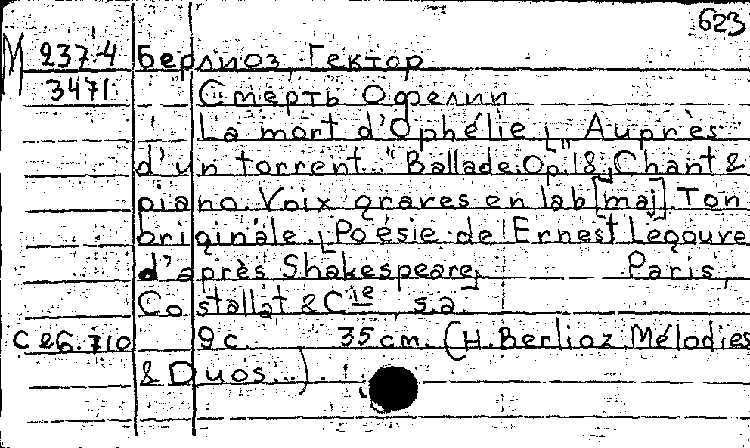 623
М 237-4 Берлиоз, Гектор
3471 Смерть Офелии
La mort d'Ophélie „Auprès
d'un torrent..." Ballade. Op. 18, Chant &
piano. Voix graves en lab [maj]. Ton
originale. Poésie de Ernest Legouvé
d'après Shakespeare. Paris,
Costallat & Cie s.a.
C 26.710 9 c. 35 cm. (H. Berlioz. Mélodies
& Duos...).